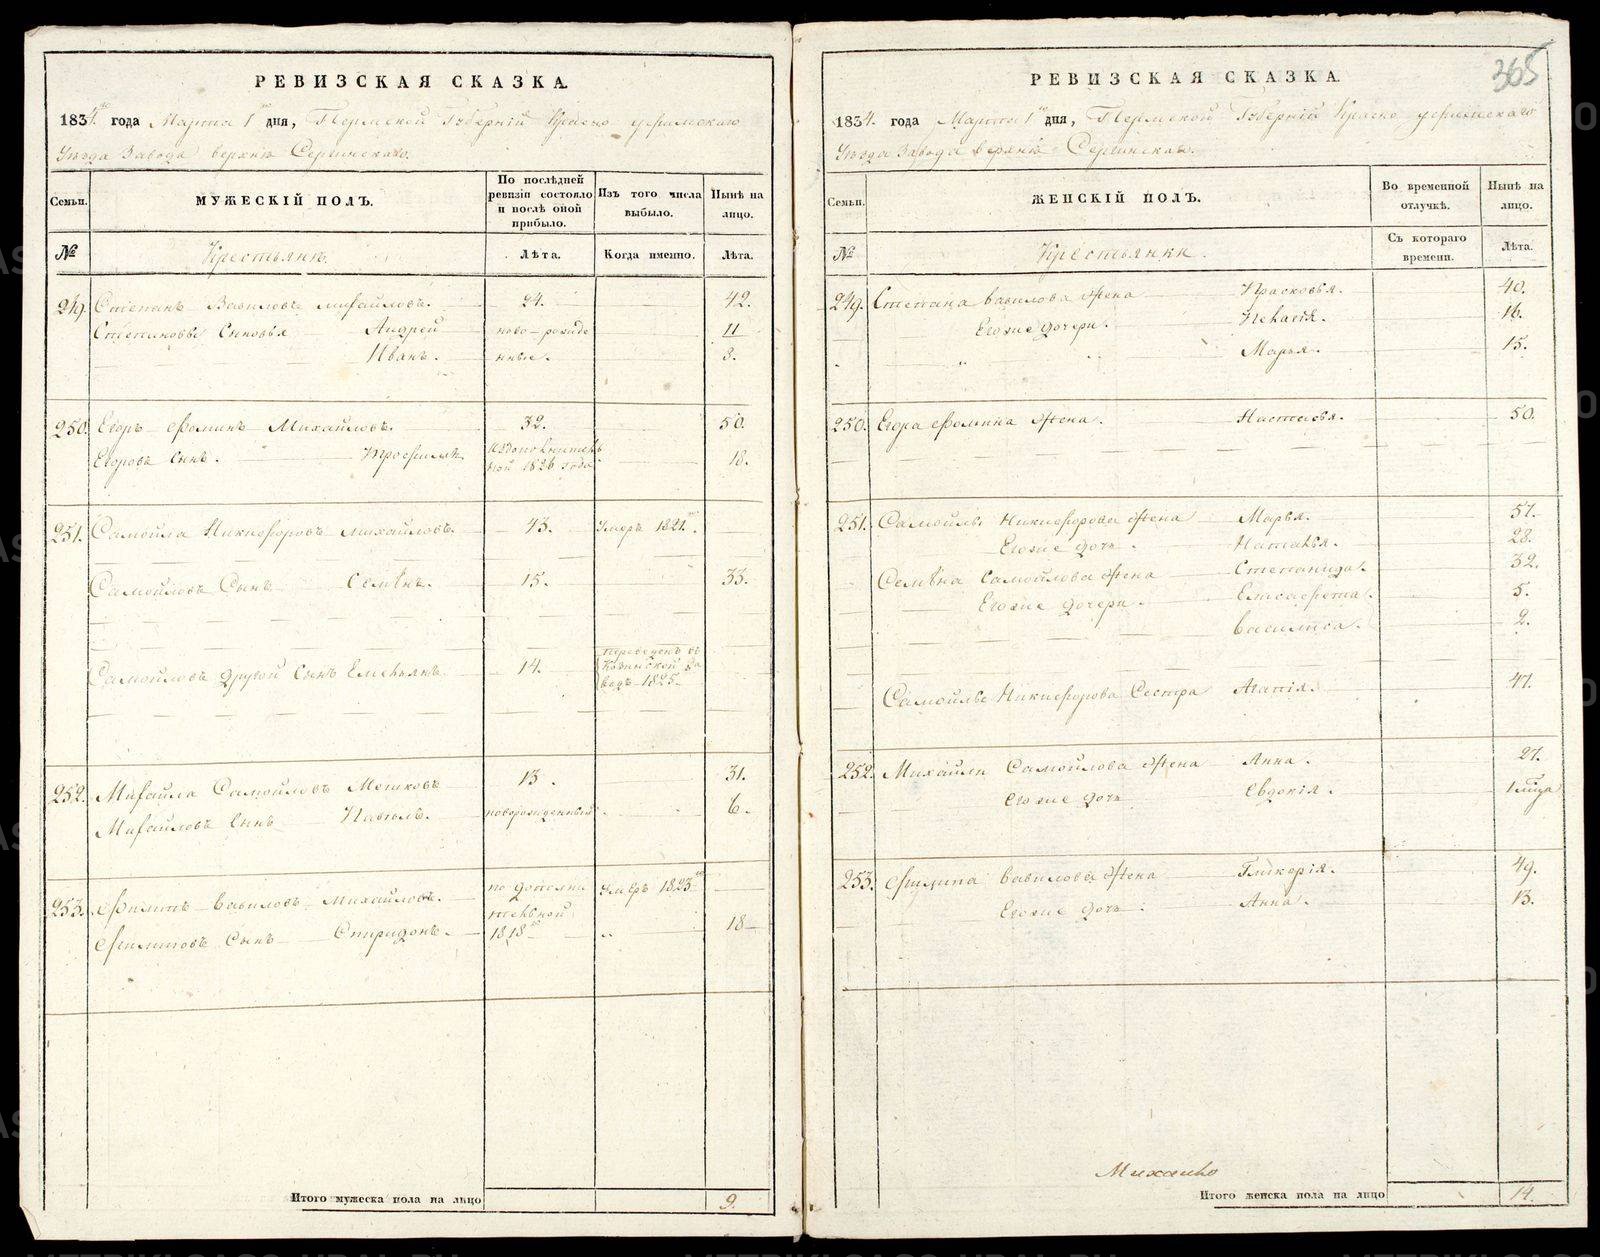 РЕВИЗСКАЯ СКАЗКА.
1834го года Марта 1го дня, Пермской Губернiи Красно уфимскаго
Уѣзда Завода верхне Сергинскаго.
Семьи.
МУЖЕСКIЙ ПОЛЪ.
По послѣдней ревизiи состояло и послѣ оной прибыло.
Изъ того числа выбыло.
Нынѣ на лицо.
№
Крестьяне.
Лѣта.
Когда именно.
Лѣта.
249. Степанъ Вавиловъ Михайловъ. 24. 42.
Степановы Сыновья Андрей ново-рожде 11
Иванъ. нные. 3.
250. Егоръ Фоминъ Михайловъ. 32. 50.
Егоровъ Сынъ. 18.
1826 года
251. Самойла Никифоровъ Михайловъ. 43. Умеръ 1821го.
Самойловъ Сынъ Семенъ. 15. 33.
Самойловъ другой Сынъ Емельянъ. 14.
переведенъ въ
за
водъ 1825.
252. Михайла Самойловъ Мошковъ 13. 31.
Михайловъ Сынъ Павелъ. новорожденный. 6.
253. Филипъ Вавиловъ Михайловъ. по дополни Умеръ 1823го
тельной
Филиповъ Сынъ Спиридонъ. 1818го 18
Итого мужеска пола на лицо 9.
365
РЕВИЗСКАЯ СКАЗКА.
1834. года Марта 1го дня, Пермской Губернiи Красно уфимскаго
Уѣзда Завода верхне Сергинскаго.
Семьи.
ЖЕНСКIЙ ПОЛЪ.
Во временной отлучкѣ.
Нынѣ на лицо.
№
Крестьянки.
Съ котораго времени.
Лѣта.
249. Степана Вавилова жена Прасковья. 40.
Егоже дочери. Пелагiя. 16.
Марья. 15.
250. Егора Фомина жена. Настасья. 50.
251. Самойлы Никифорова жена Марья. 57.
Егоже дочь. Наталья. 28.
Семена Самойлова жена Степанида. 32.
Егоже дочери. Елисафета. 5.
Василиса. 2.
Самойлы Никифорова Сестра Агапiя. 47.
252. Михайлы Самойлова жена Анна. 27.
Егоже дочь Евдокiя.
253. Филипа Вавилова жена Гликерiя. 49.
Егоже дочь Анна. 13.
Итого женска пола на лицо 14.